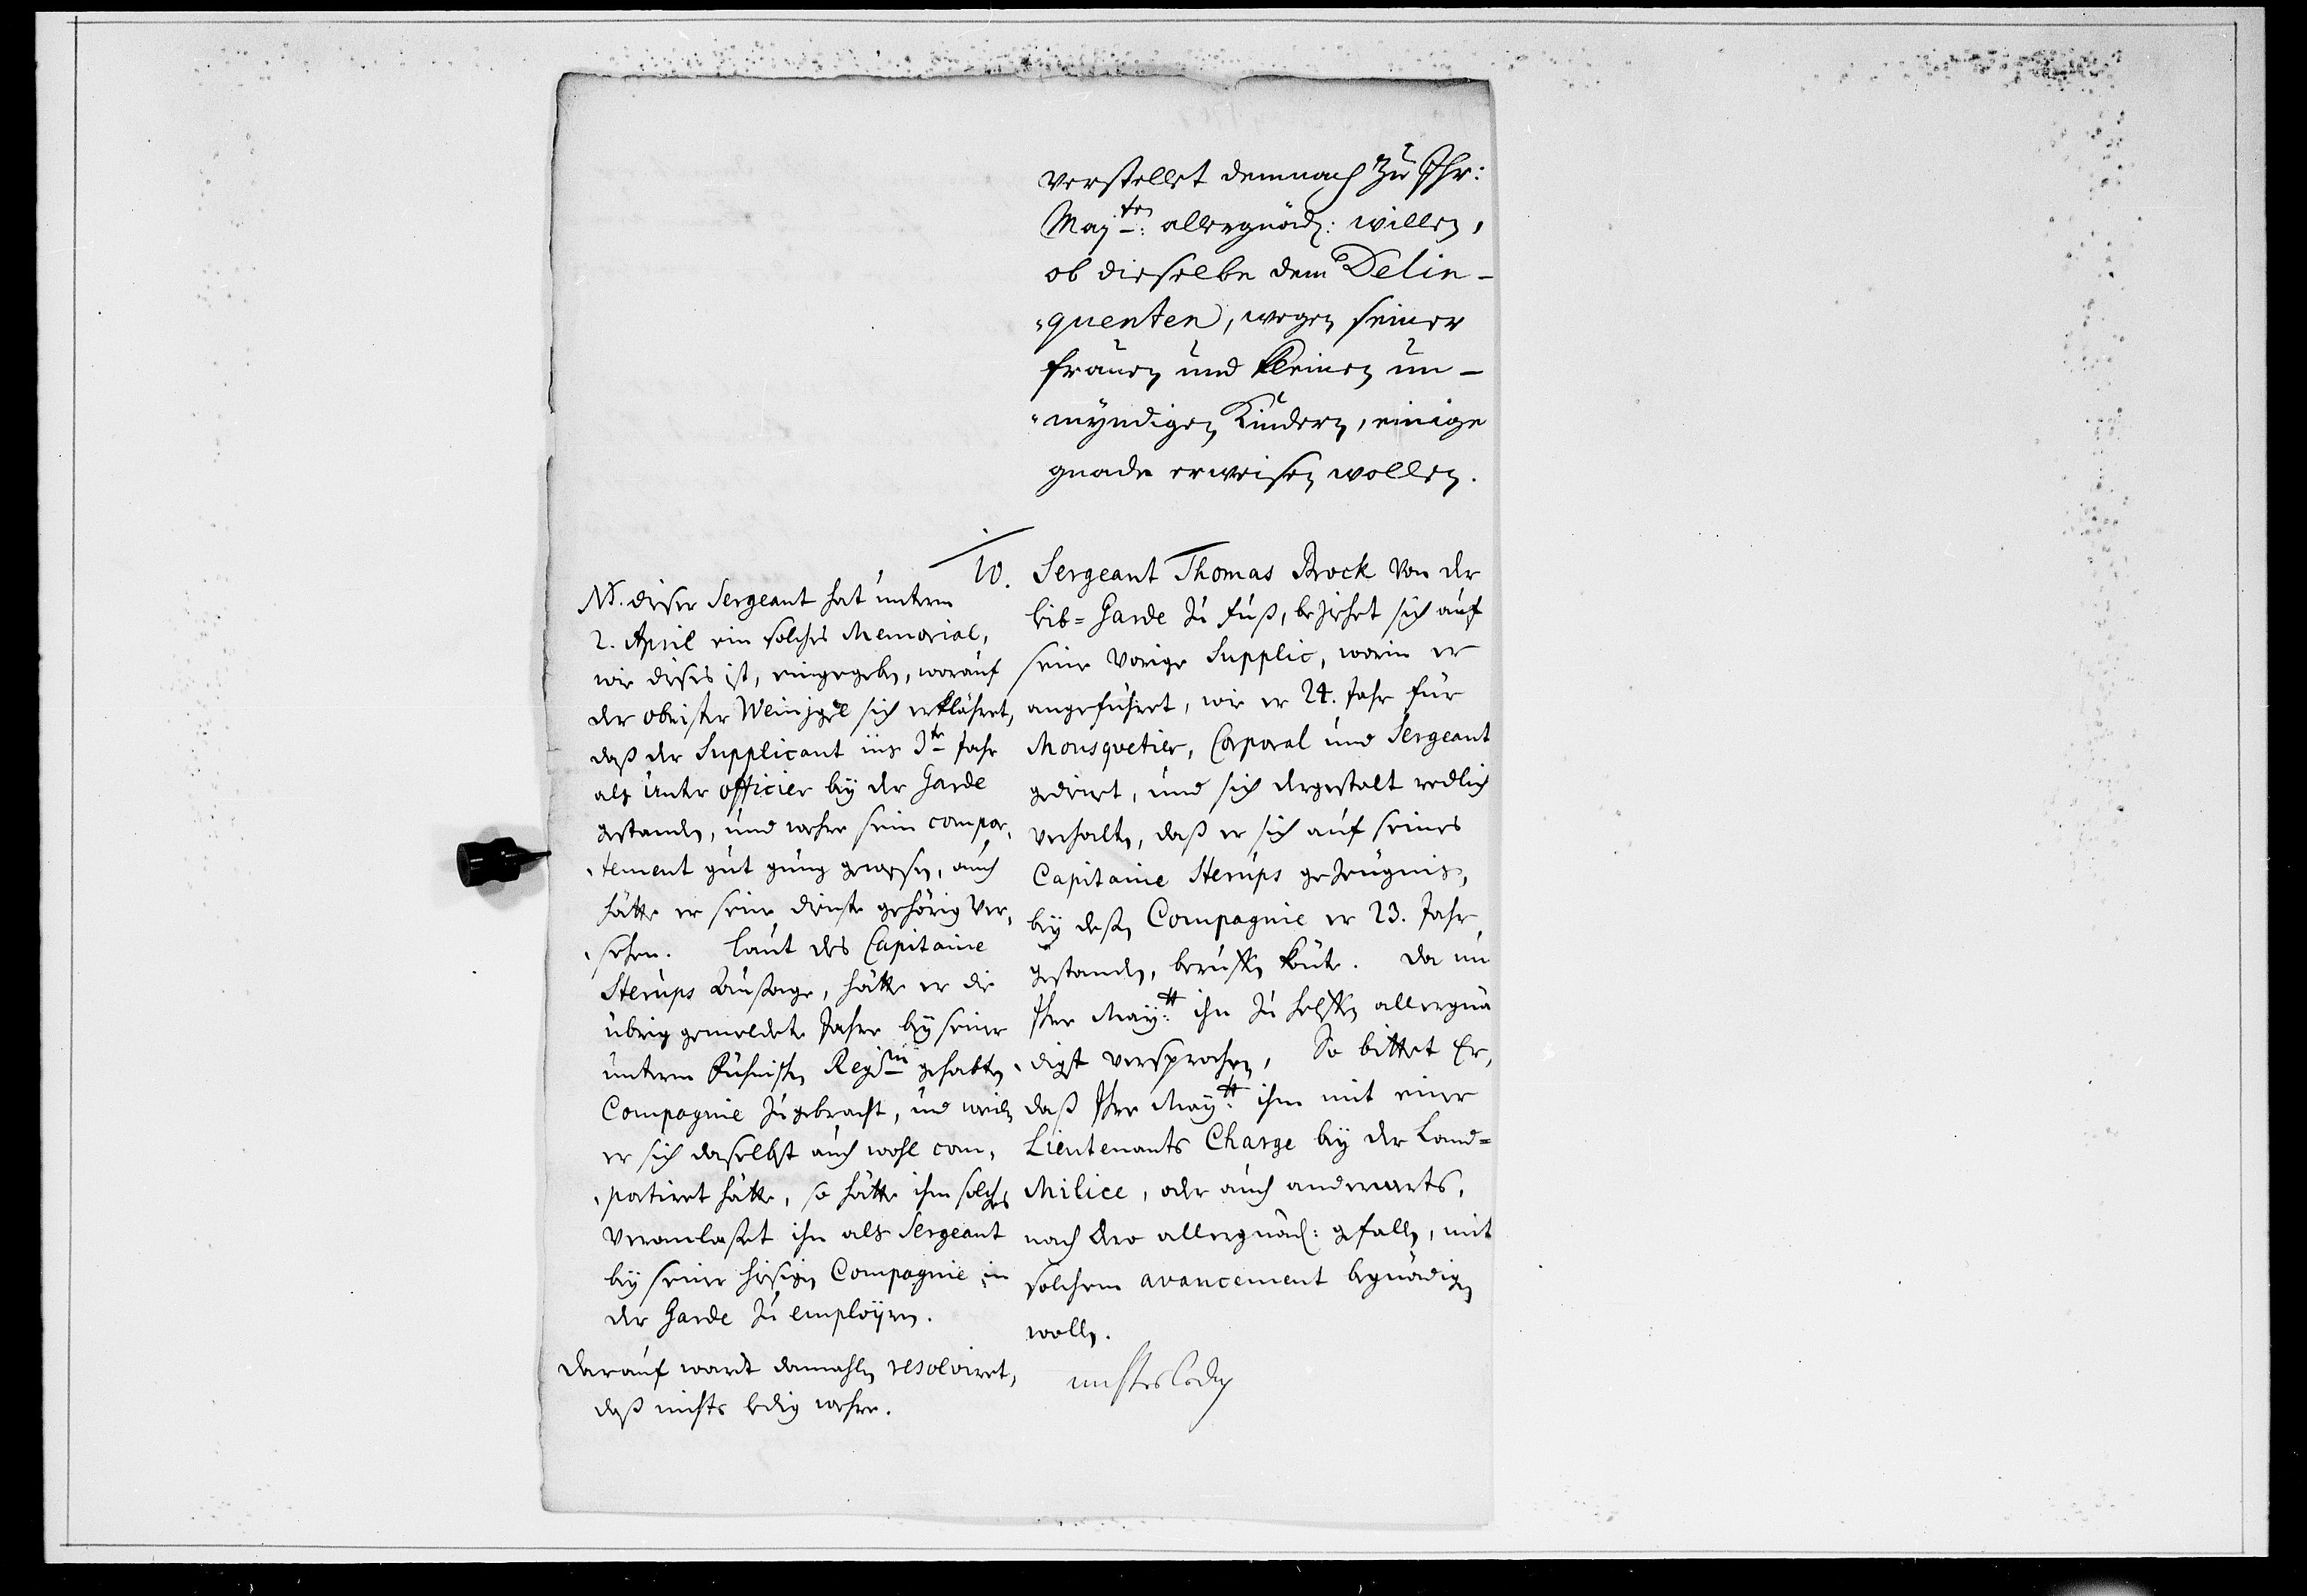 verstellet demnach zu Ihr:
Maj:ten allergnäd: willen,
ob dieselbe dem Delin-
quenten, wegen seiner
frauen und kleinen un-
myndigen Kindern, einige
gnade erweisen wollen.
10. Sergeant Thomas Brock von der
Lib=Garde zu fuß, beziehet sich auf
seine vorige Supplic, worin er
angeführet, wie er 24. Jahr für
Mousquetier, Corporal und Sergeant
gedienet, und sich dergestalt redlich
verhalten, daß er sich auf seines
Capitaine Sterups gezeugnis,
bey deßen Compagnie er 23. Jahr
gestanden, beruffen könte. Da nu
Ihre May:tt ihn zu helffen allergnä
digst versprochen, So bittet Er,
daß Ihre May:tt ihm mit einer
Lieutenants Charge bey der Land=
Milice, oder auch anderwerts,
nach dero allergnäd: gefallen, mit
solchem avancement begnädigen
wollen.
nichts ledig
NB. dieser Sergeant hat unterm
2. April ein solches Memorial,
wie dieses ist, eingegeben, worauf
der obrister sich erklähret,
daß der Supplicant ins 3te Jahr
als Unter officier bey der Garde
gestanden, und wehre sein compor,
tement gut gnug gewesen, auch
hätte er seine dienste gehörig ver,
sehen. laut des Capitaine
Sterups Außage, hätte er die
übrig gemeldete Jahre bey seiner
unterm Regim gehabten
Compagnie zugebracht, und weilen
er sich daselbst auch wohl com,
portiret hätte, so hätte ihm solches
veranlaßet ihn als Sergeant
bey seiner hiesigen Compagnie in
der Garde zu employren.
darauf wardt damahlen resolviret,
daß nichts ledig wehre.